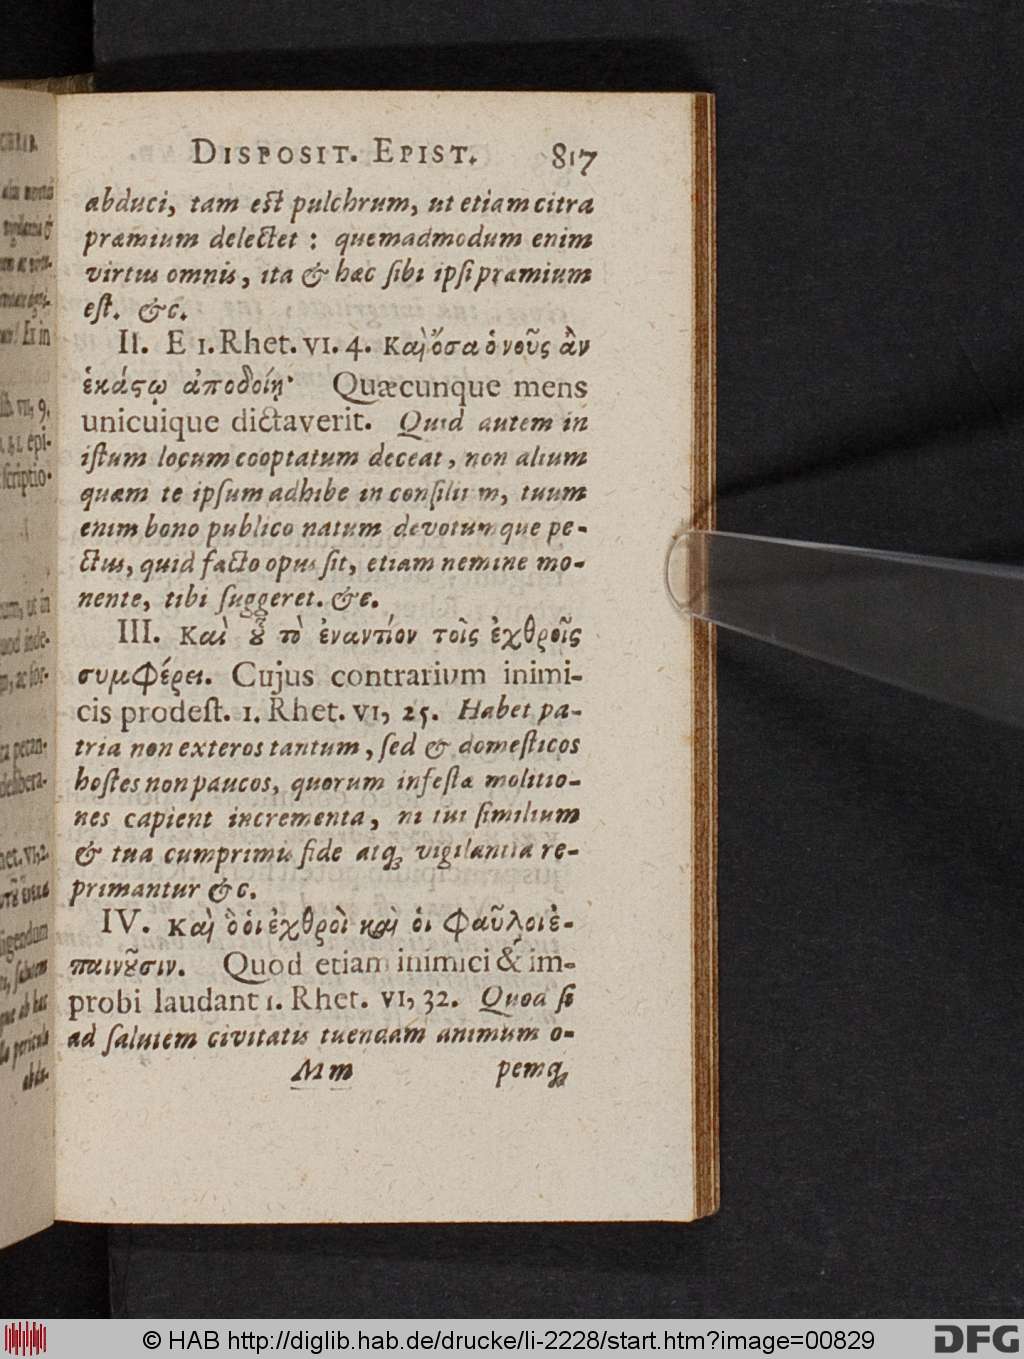 DISPOSIT. EPIST. 817
abduci, tam est pulchrum, ut etiam citra
præmium delectet : quemadmodum enim
virtus omnis, ita & hæc sibi ipsi præmium
est. &c.
II. E 1. Rhet. VI. 4. Καὶ ὅσα ὁ νοῦς ἂν
ἑκάϛῳ ἀποδοίη· Quæcunque mens
unicuique dictaverit. Quid autem in
istum locum cooptatum deceat, non alium
quam te ipsum adhibe in consilium, tuum
enim bono publico natum devotumque pe-
ctus, quid facto opus sit, etiam nemine mo-
nente, tibi suggeret. &c.
III. Καὶ ȣ̃ τὸ ἐναντίον τοῖς ἐχθροῖς
συμφέρει. Cujus contrarium inimi-
cis prodest. 1. Rhet. VI, 25. Habet pa-
tria non exteros tantum, sed & domesticos
hostes non paucos, quorum infesta molitio-
nes capient incrementa, ni tui similium
& tua cumprimis fide atq; vigilantia re-
primantur &c.
IV. Καὶ ὃ ὁι ἐχθροὶ καὶ ὁι φαῦλοι ἐ-
παινȣ̃σιν. Quod etiam inimici & im-
probi laudant 1. Rhet. VI, 32. Quod si
ad salutem civitatis tuendam animum o-
Mm pemq;
CHRIAR.
lib. VII, 9.
epi-
scriptio-
ut in
quod inde-
deligendum
salutem
que ab hac
pericula
abdu-
© HAB http://diglib.hab.de/drucke/li-2228/start.htm?image=00829
DFG